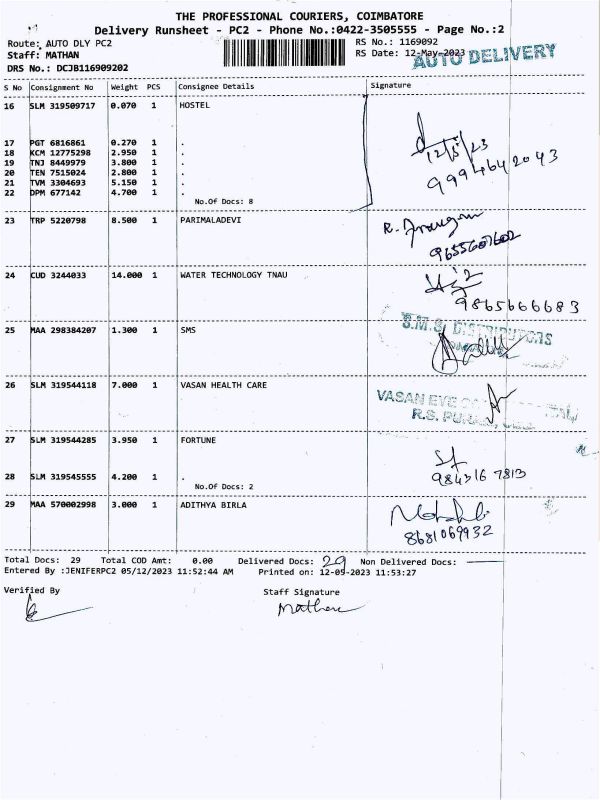 THE PROFESSIONAL COURIERS, COIMBATORE
Delivery Runsheet - PC2 - Phone No.:0422-3505555 - Page No.:2
Route: AUTO DLY PC2
RS No.: 1169092
Staff: MATHAN
RS Date: 12-May-2023
AUTO DELIVERY
DRS No.: DCJB116909202
S No Consignment No Weight PCS Consignee Details Signature
16 SLM 319509717 0.070 1 HOSTEL
17 PGT 6816861 0.270 1 .
18 KCM 12775298 2.950 1 .
19 TNJ 8449979 3.800 1 .
20 TEN 7515024 2.800 1 .
21 TVM 3304693 5.150 1 .
22 DPM 677142 4.700 1 .
No.Of Docs: 8
12/5/23
9994642043
23 TRP 5220798 8.500 1 PARIMALADEVI
9655607602
24 CUD 3244033 14.000 1 WATER TECHNOLOGY TNAU
9865666683
25 MAA 298384207 1.300 1 SMS
S.M.S. DISTRIBUTORS
26 SLM 319544118 7.000 1 VASAN HEALTH CARE
VASAN EYE
R.S. PURAM,
27 SLM 319544285 3.950 1 FORTUNE
28 SLM 319545555 4.200 1 .
No.Of Docs: 2
984316 7813
29 MAA 570002998 3.000 1 ADITHYA BIRLA
8681069932
Total Docs: 29 Total COD Amt: 0.00 Delivered Docs: 29 Non Delivered Docs:
Entered By :JENIFERPC2 05/12/2023 11:52:44 AM Printed on: 12-05-2023 11:53:27
Verified By Staff Signature
Mathan